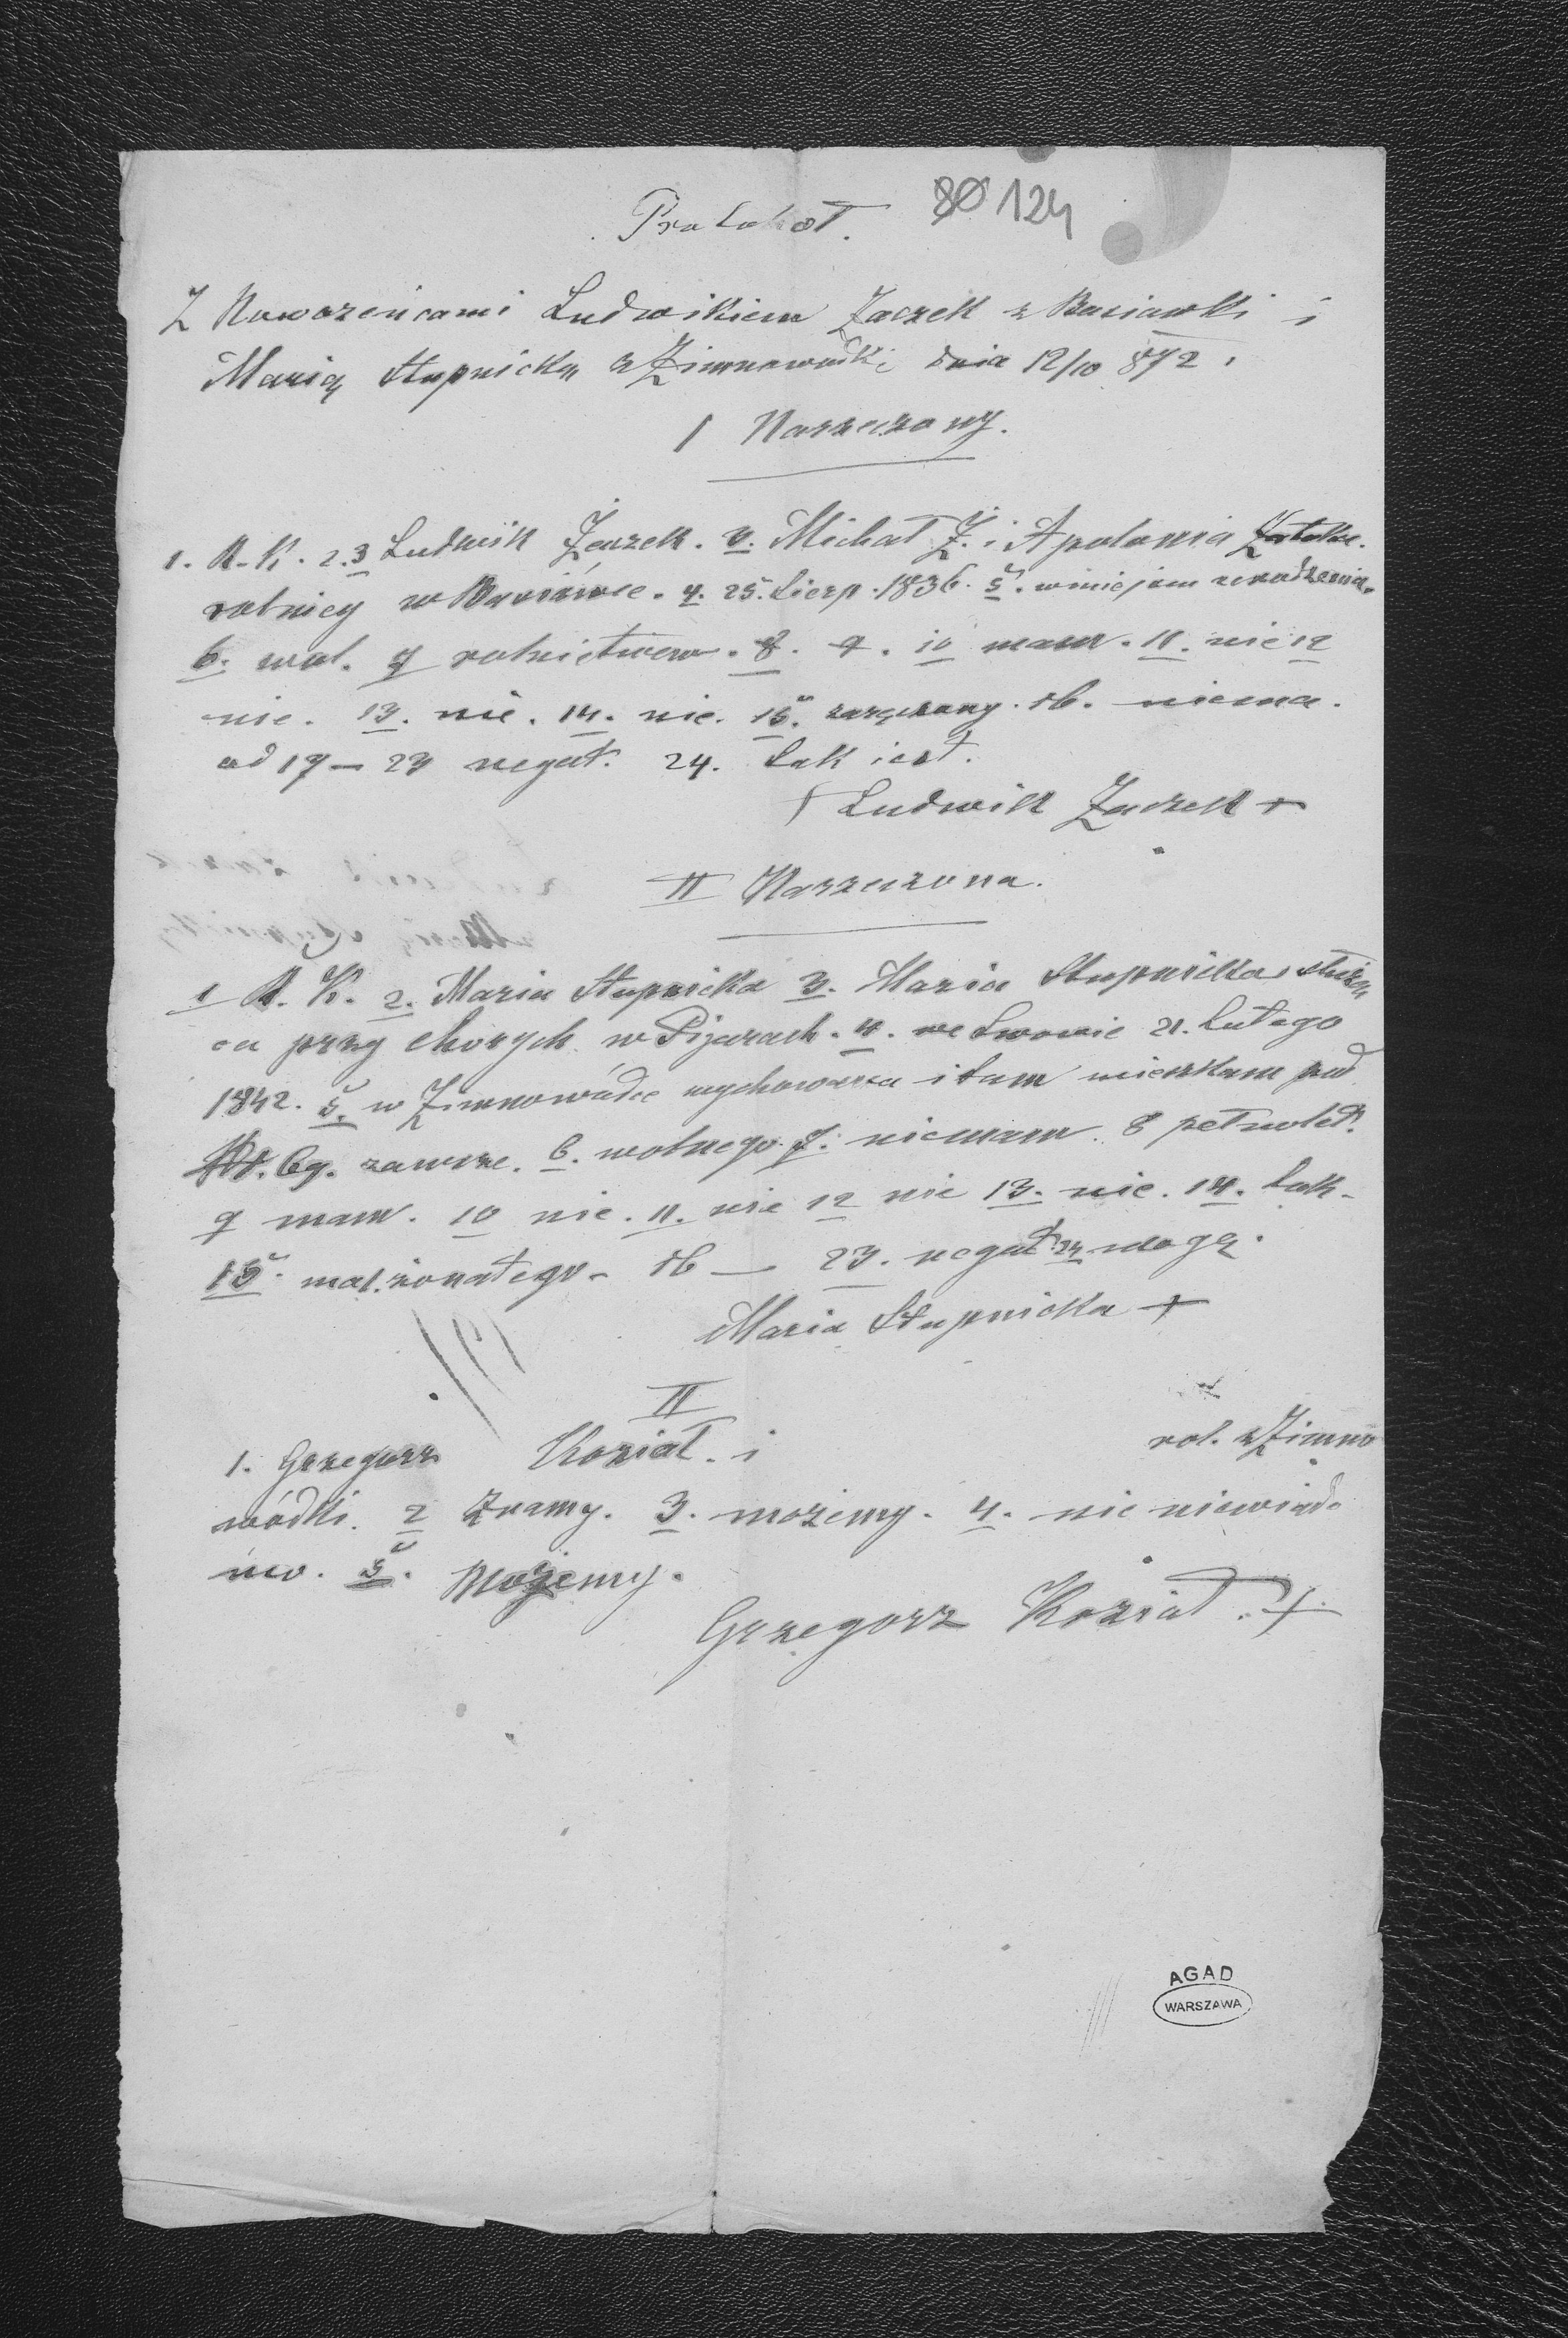 Protokoł. 80 124
Z Nowożeńcami Ludwikiem Żaczek z Basiówki i
Marią Stupnicką z Zimnowódki dnia 12/10 872.
I Narzeczony.
1. R. K. 2. 3 Ludwik Żaczek. 3. Michał Ż. i Apolonia
rolnicy w Basiówce. 4. 25. Sierp. 1836. 5. w miejscu urodzenia.
6. wol. 7 rolnictwem. 8. 9. 10 mam. 11. nie 12
nie. 13. nie. 14. nie. 15. zaręczony. 16. niema.
od 17 – 23 negat. 24. tak jest.
† Ludwik Żaczek +
II Narzeczona.
1 R. K. 2. Maria Stupnicka 3. Maria Stupnicka służą
ca przy chorych w Pijarach. 4. we Lwowie 21. Lutego
1842. 5. w Zimnowódce wychowana i tam mieszkam pod
Nr. 69. zawsze. 6. wolnego. 7. niemam. 8 pełnolet.
9 mam. 10 nie. 11. nie 12 nie 13. nie. 14. tak.
15. mał. żonatego. 16 — 23. negat. 24 mogę.
Maria Stupnicka +
II
1. Grzegorz Koział. i rol. z Zimno
wódki. 2 Znamy. 3. możemy. 4. nie niewiado
mo. 5. możemy.
Grzegorz Koział. +
AGAD
WARSZAWA